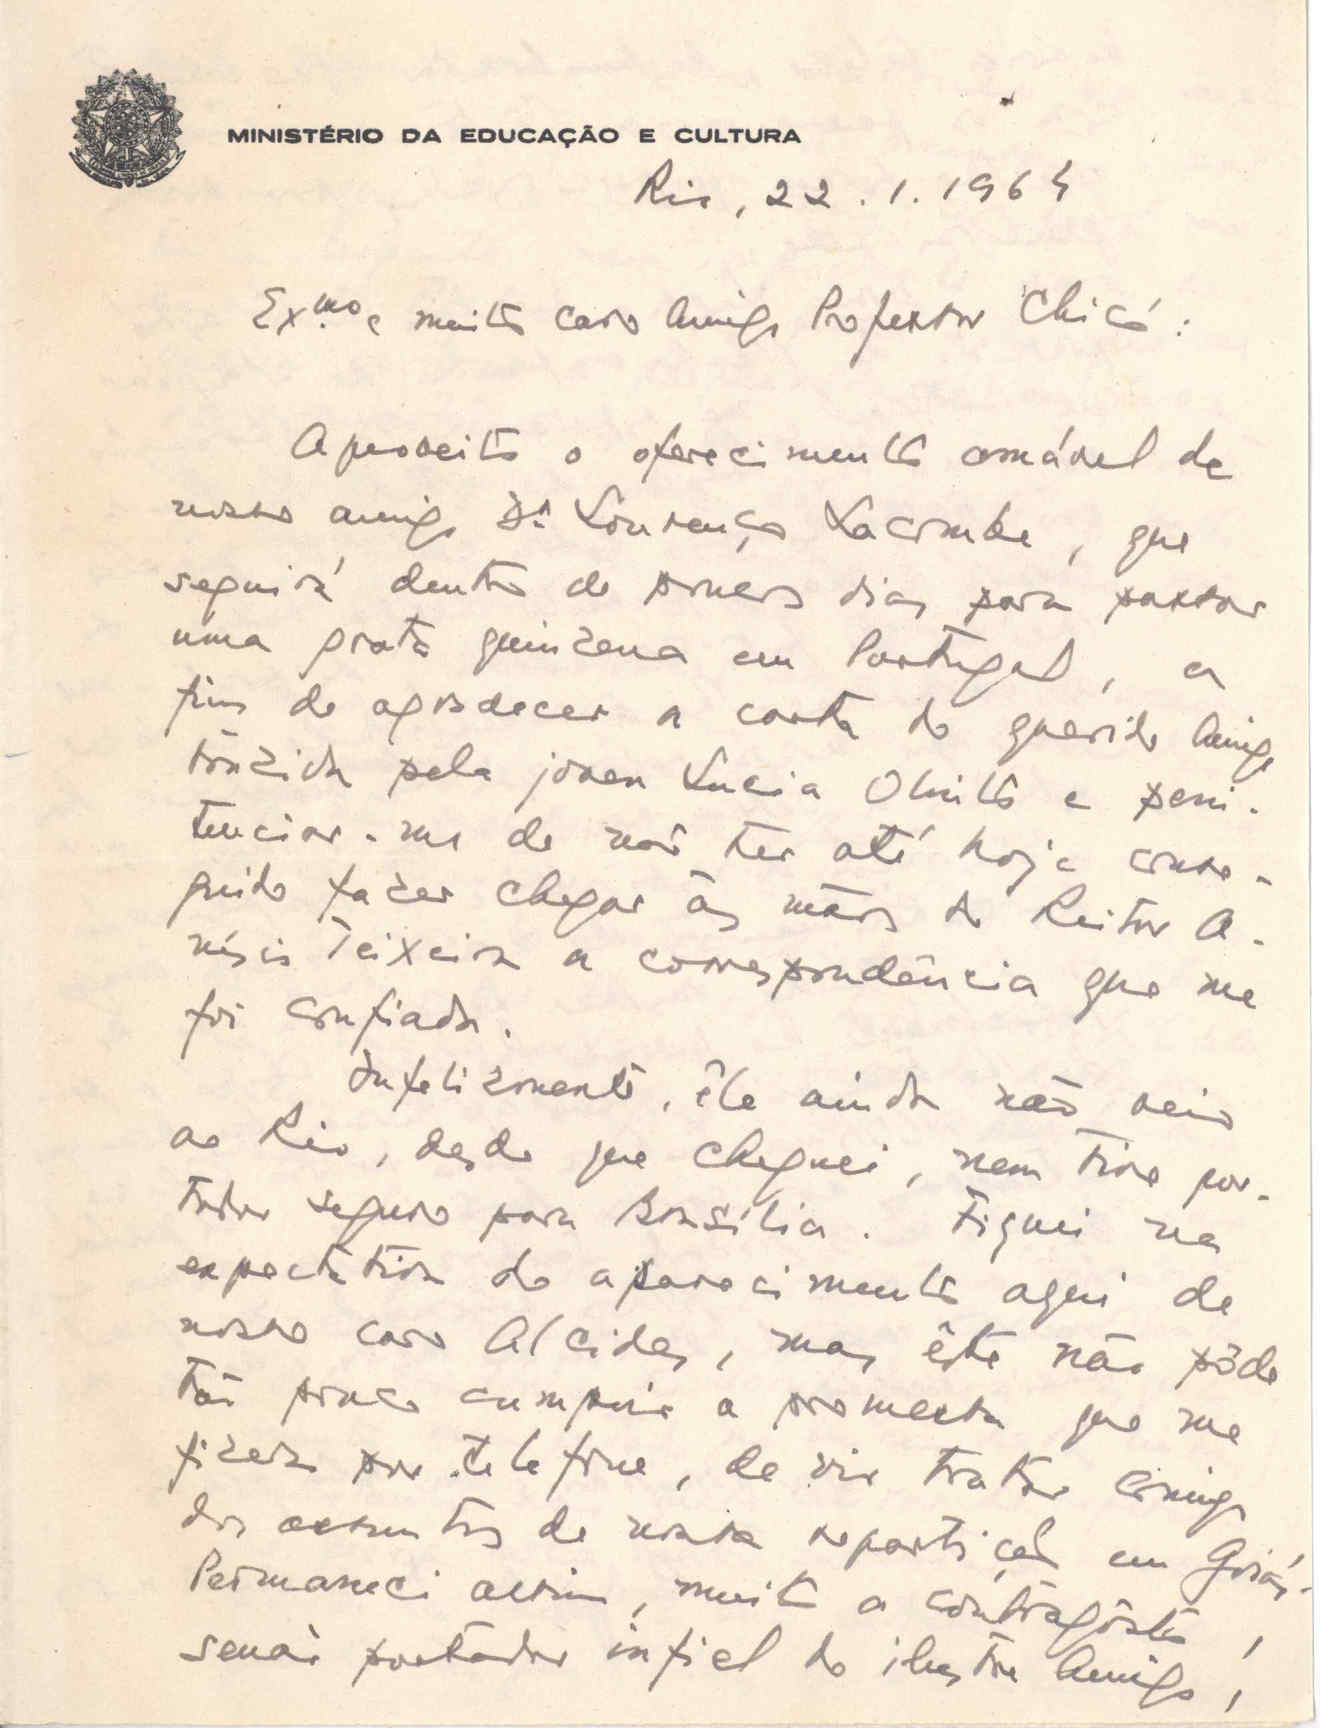 MINISTÉRIO DA EDUCAÇÃO E CULTURA
Rio, 22.1.1964
Exmo e muito caro Amigo Professor Chicó:
Aproveito o oferecimento amável de
nosso amigo Dr Lourenço Lacombe, que
seguirá dentro de poucos dias para passar
uma grata quinzena em Portugal, a
fim de agradecer a carta do querido Amigo
trazida pela jovem Lucia Olinto e peni-
tenciar-me de não ter até hoje conse-
guido fazer chegar às mãos do Reitor A-
nísio Teixeira a correspondência que me
foi confiada.
Infelizmente, êle ainda não veio
ao Rio, desde que cheguei, nem tive por-
tador seguro para Brasília. Fiquei na
expectativa do aparecimento aqui de
nosso caro Alcides, mas êste não pôde
tão pouco cumprir a promessa que me
fizera por telefone, de vir tratar comigo
dos assuntos de nossa repartição em Goiás.
Permaneci assim, muito a contragôsto,
senão portador infiel do ilustre Amigo,